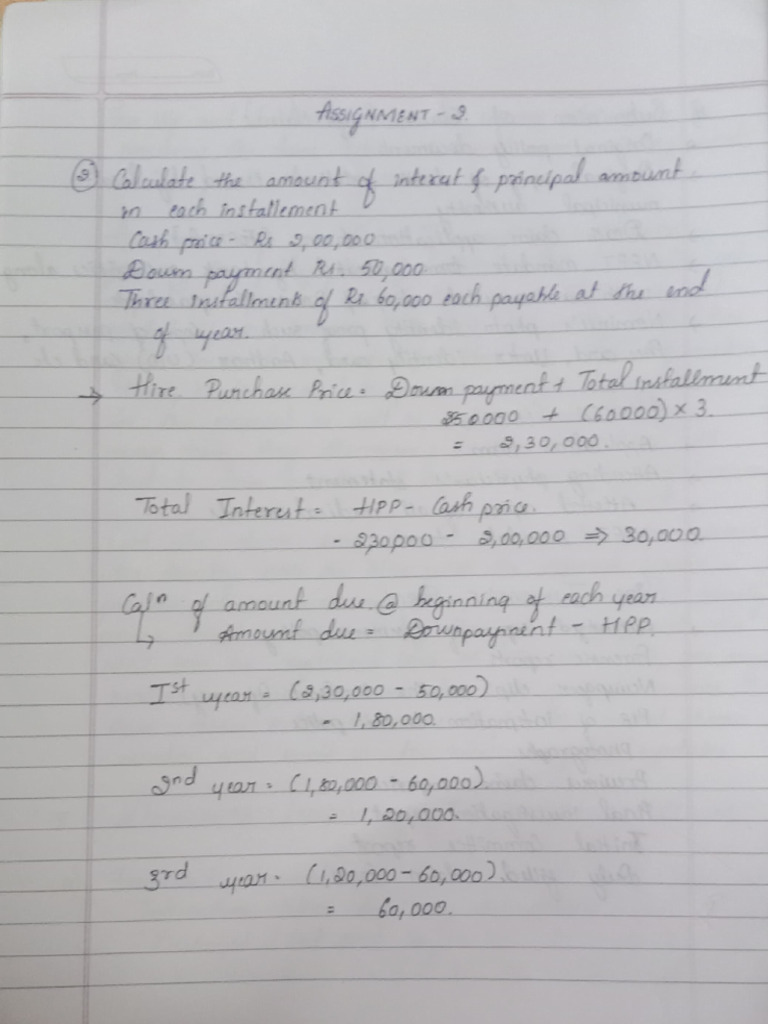 ASSIGNMENT - 2.
② Calculate the amount of interest & principal amount
in each installement
Cash price - Rs 2,00,000
Down payment Rs. 50,000
Three installments of Rs. 60,000 each payable at the end
of year.
→ Hire Purchase Price = Down payment + Total installment
250000 + (60000) × 3.
= 2,30,000.
Total Interest = HPP - Cash price.
- 230,000 - 2,00,000 ⇒ 30,000
Calⁿ of amount due @ beginning of each year
↳ Amount due = Downpayment - HPP.
Ist year = (2,30,000 - 50,000)
= 1,80,000.
2nd year = (1,80,000 - 60,000)
= 1,20,000.
3rd year = (1,20,000 - 60,000)
= 60,000.